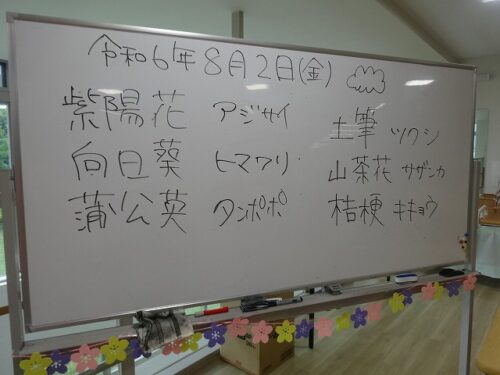 令和6年8月2日(金)
紫陽花 アジサイ
向日葵 ヒマワリ
蒲公英 タンポポ
土筆 ツクシ
山茶花 サザンカ
桔梗 キキョウ